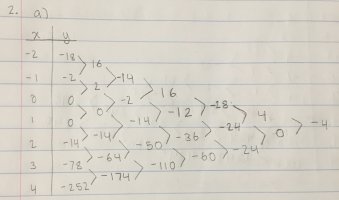 2. a)
x y
-2 -18
16
-1 -2 -14
2 16
0 0 -2 -28
0 -12 4
1 0 -14 -24 -4
-14 -36 0
2 -14 -50 -24
-64 -60
3 -78 -110
-174
4 -252